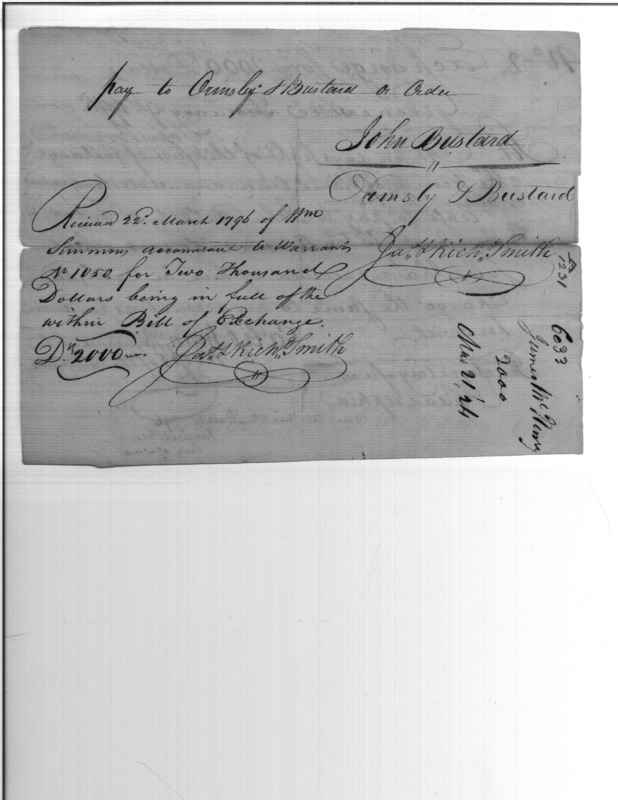 pay to Ormsby & Bustard or Order
John Bustard
Ormsby & Bustard
Received 22d. March 1796 of Wm
Simmons Accountant to Warrant
No 1050 for Two Thousand
Dollars being in full of the
within Bill of Exchange.
Drs 2000
Jas. & Richd. Smith
Jas. & Richd. Smith
6033
James McHenry
2000